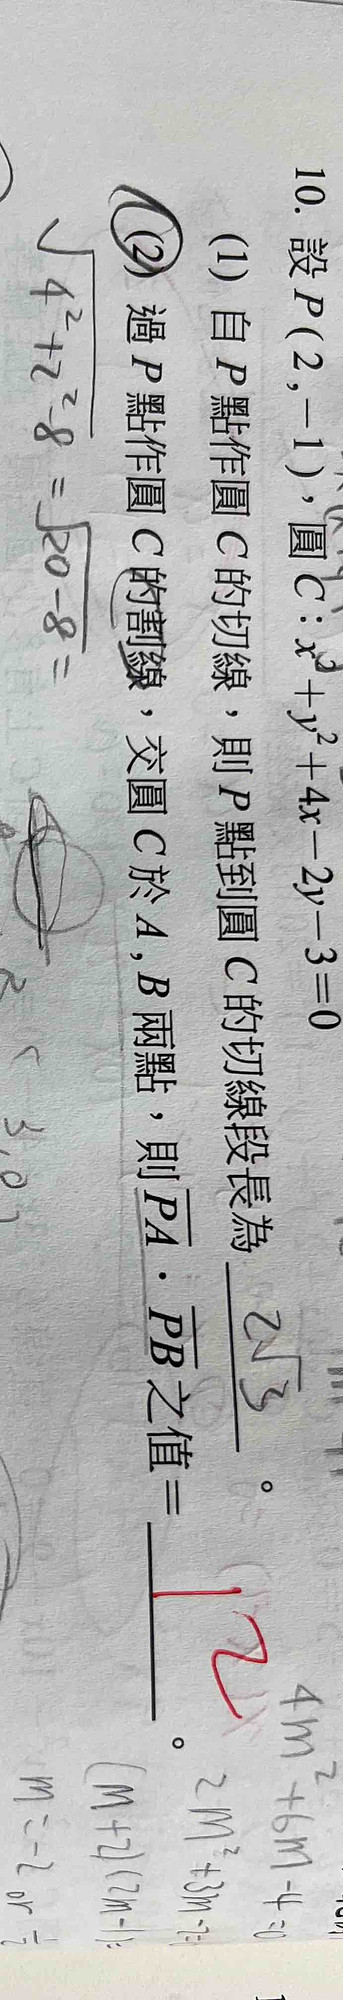 10. 設 P(2,-1)，圓 C：x²+y²+4x-2y-3=0
(1) 自 P 點作圓 C 的切線，則 P 點到圓 C 的切線段長為 2√3 。
(2) 過 P 點作圓 C 的割線，交圓 C 於 A , B 兩點，則 \overline{PA}．\overline{PB} 之值= 12 。
√(4²+2²-8) = √(20-8) =
4m²+6m-4=0
2m²+3m-2=
(m+2)(2m-1)=
m=-2 or ½